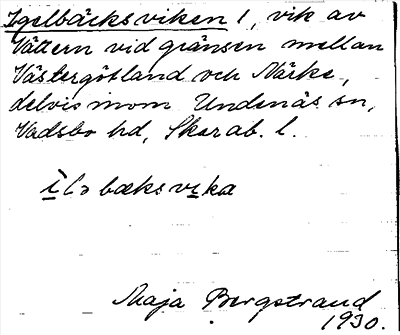 Igelbäcksviken 1, vik av
Vättern vid gränsen mellan
Västergötland och Närke,
delvis inom Undenäs sn,
Vadsbo hd, Skarab. l.
ìlə bæksvɩka
Maja Bergstrand
1930.